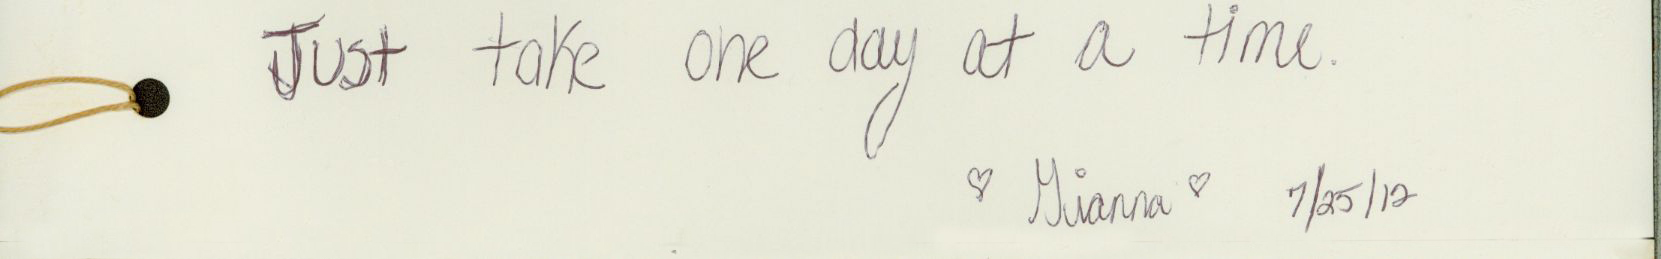 Just take one day at a time.
♡ Gianna ♡ 7/25/12